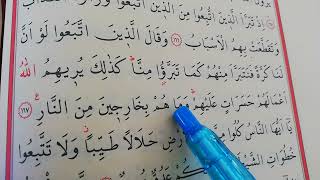 إِذْ تَبَرَّأَ الَّذِينَ اتُّبِعُوا مِنَ الَّذِينَ
وَتَقَطَّعَتْ بِهِمُ الْأَسْبَابُ ﴿١٦٦﴾ وَقَالَ الَّذِينَ اتَّبَعُوا لَوْ أَنَّ
لَنَا كَرَّةً فَنَتَبَرَّأَ مِنْهُمْ كَمَا تَبَرَّؤُا مِنَّا كَذٰلِكَ يُرِيهِمُ اللهُ
أَعْمَالَهُمْ حَسَرَاتٍ عَلَيْهِمْ وَمَا هُمْ بِخَارِجِينَ مِنَ النَّارِ ﴿١٦٧﴾
يَا أَيُّهَا النَّاسُ كُلُوا حَلَالًا طَيِّبًا وَلَا تَتَّبِعُوا
خُطُوَاتِ